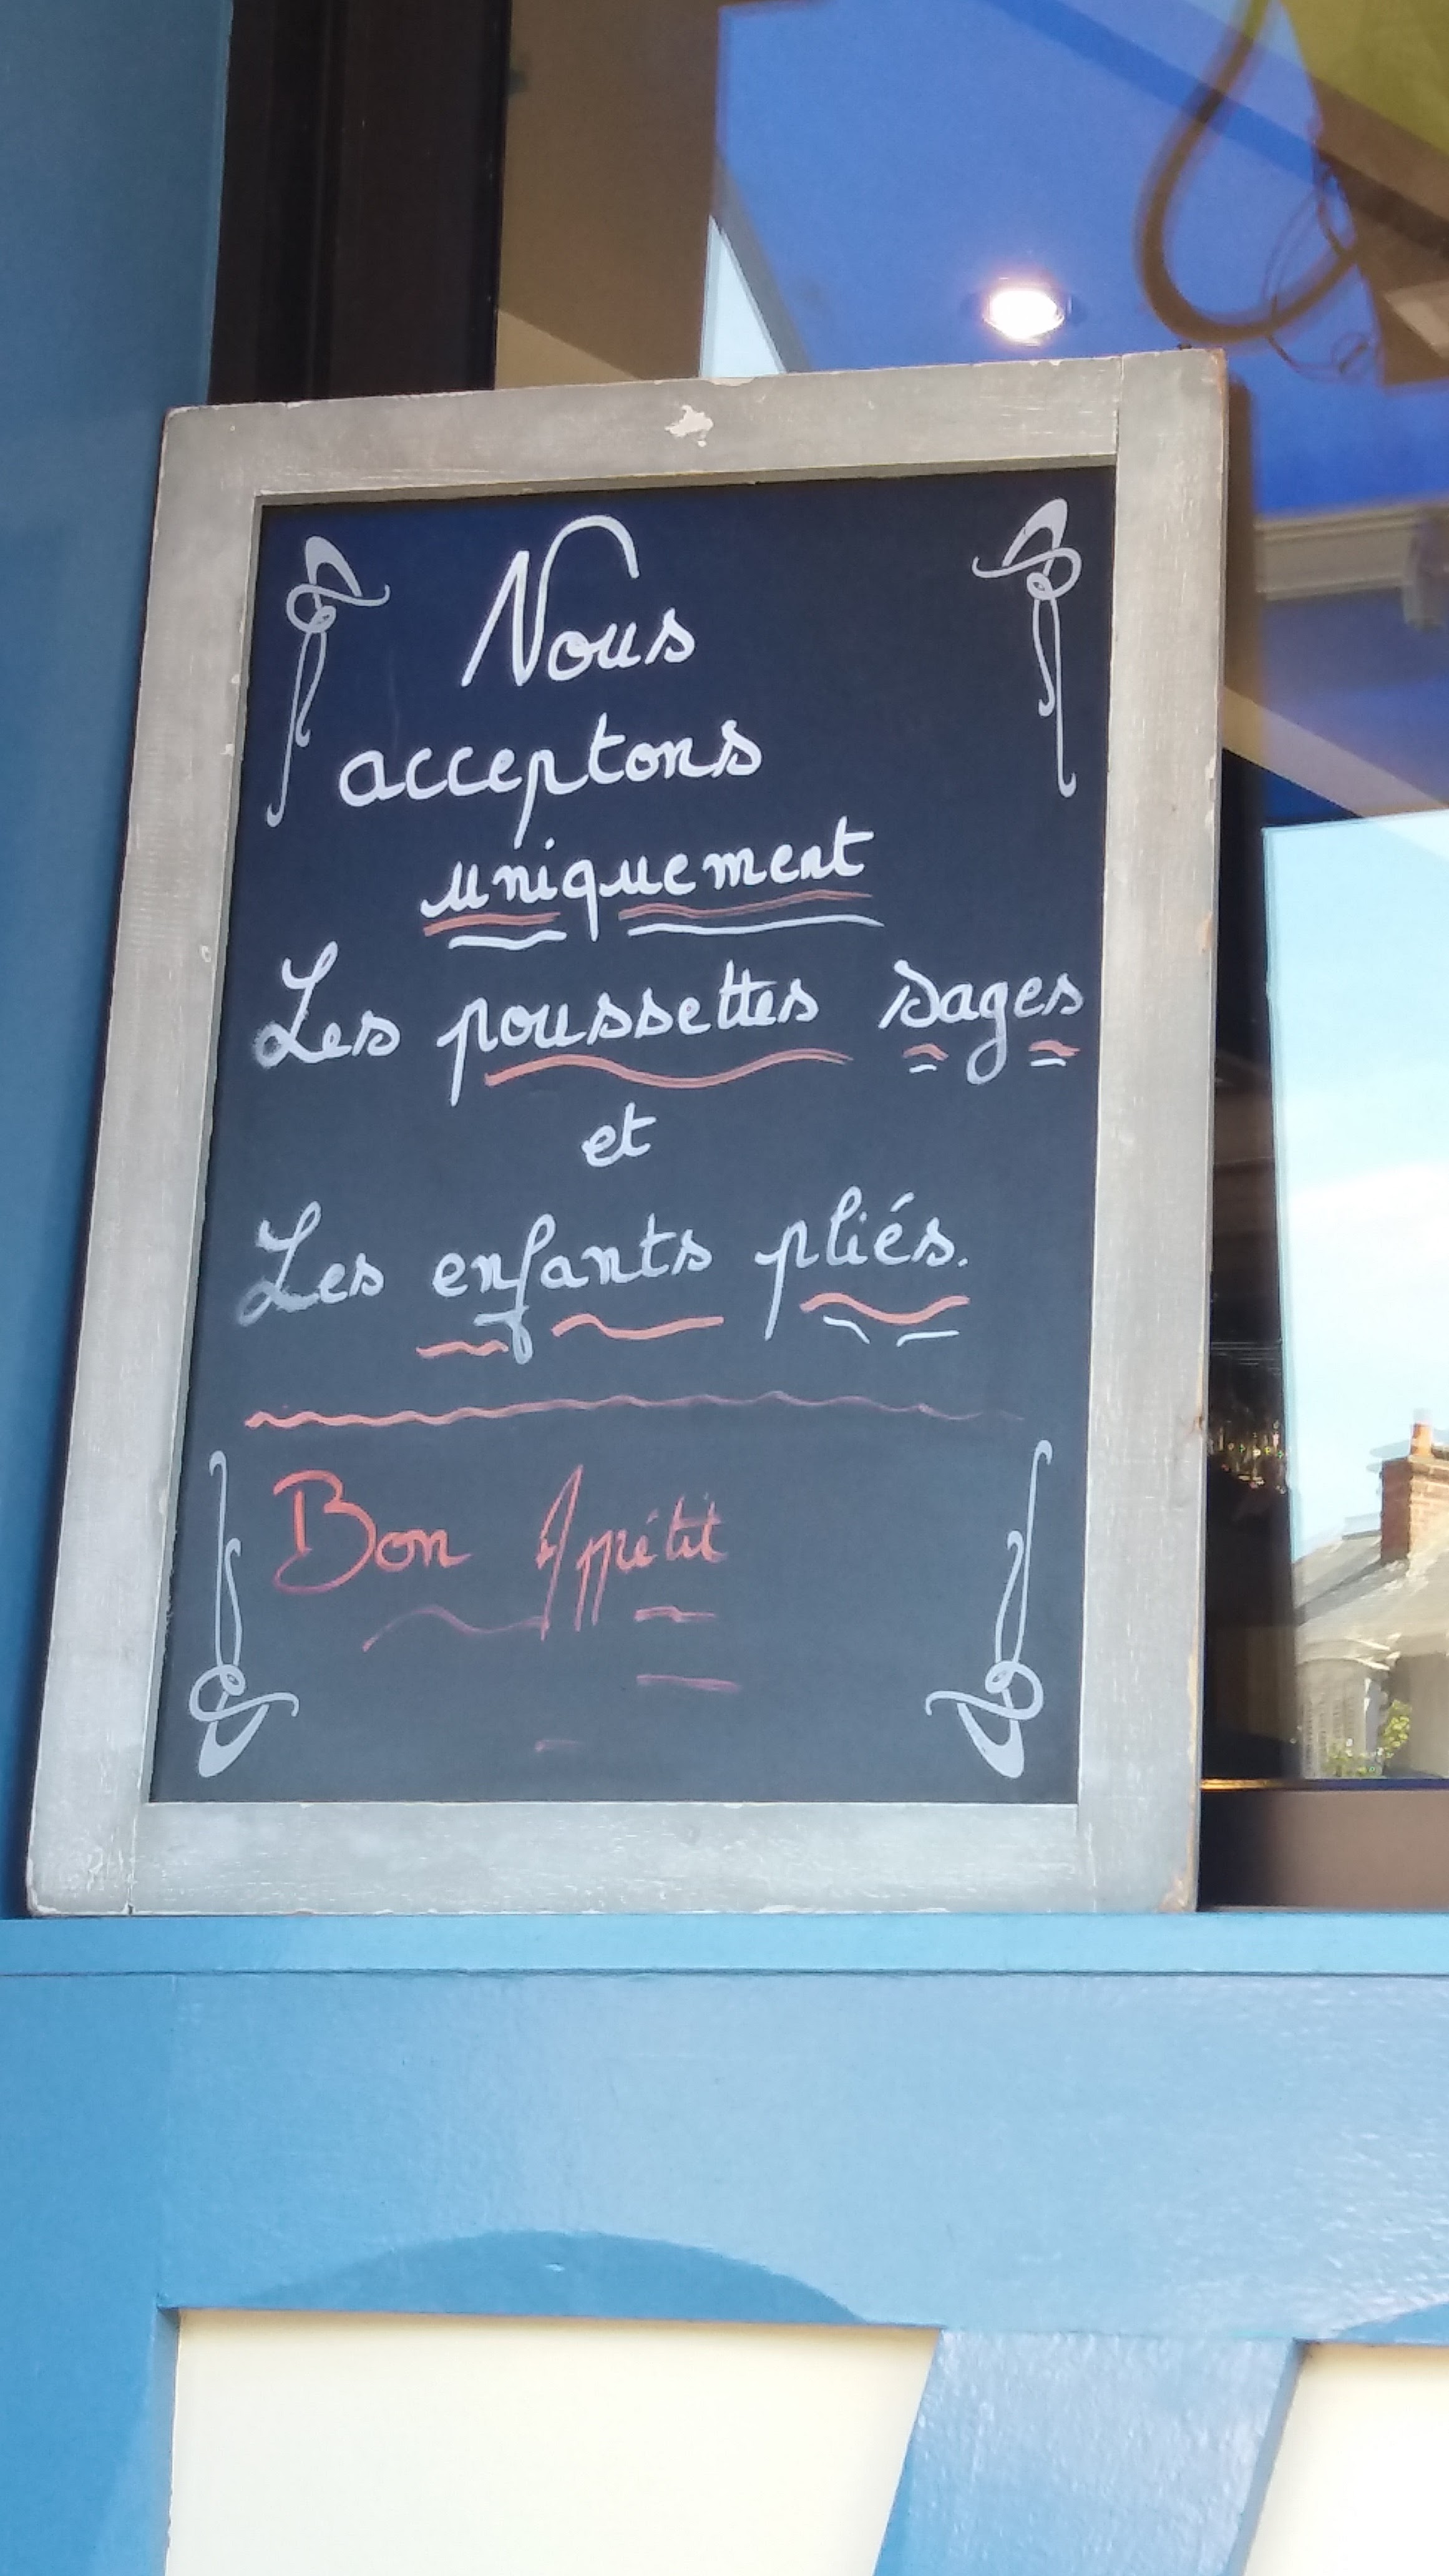 Nous
acceptons
uniquement
Les poussettes sages
et
Les enfants pliés.
Bon Appétit